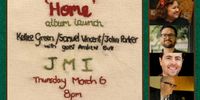 'Home'
album launch
Kellee Green / Samuel Vincent / John Parker
with guest Andrew Butt
JMI
Thursday March 6
8pm